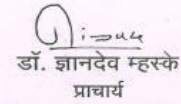 डॉ. ज्ञानदेव म्हस्के
प्राचार्य